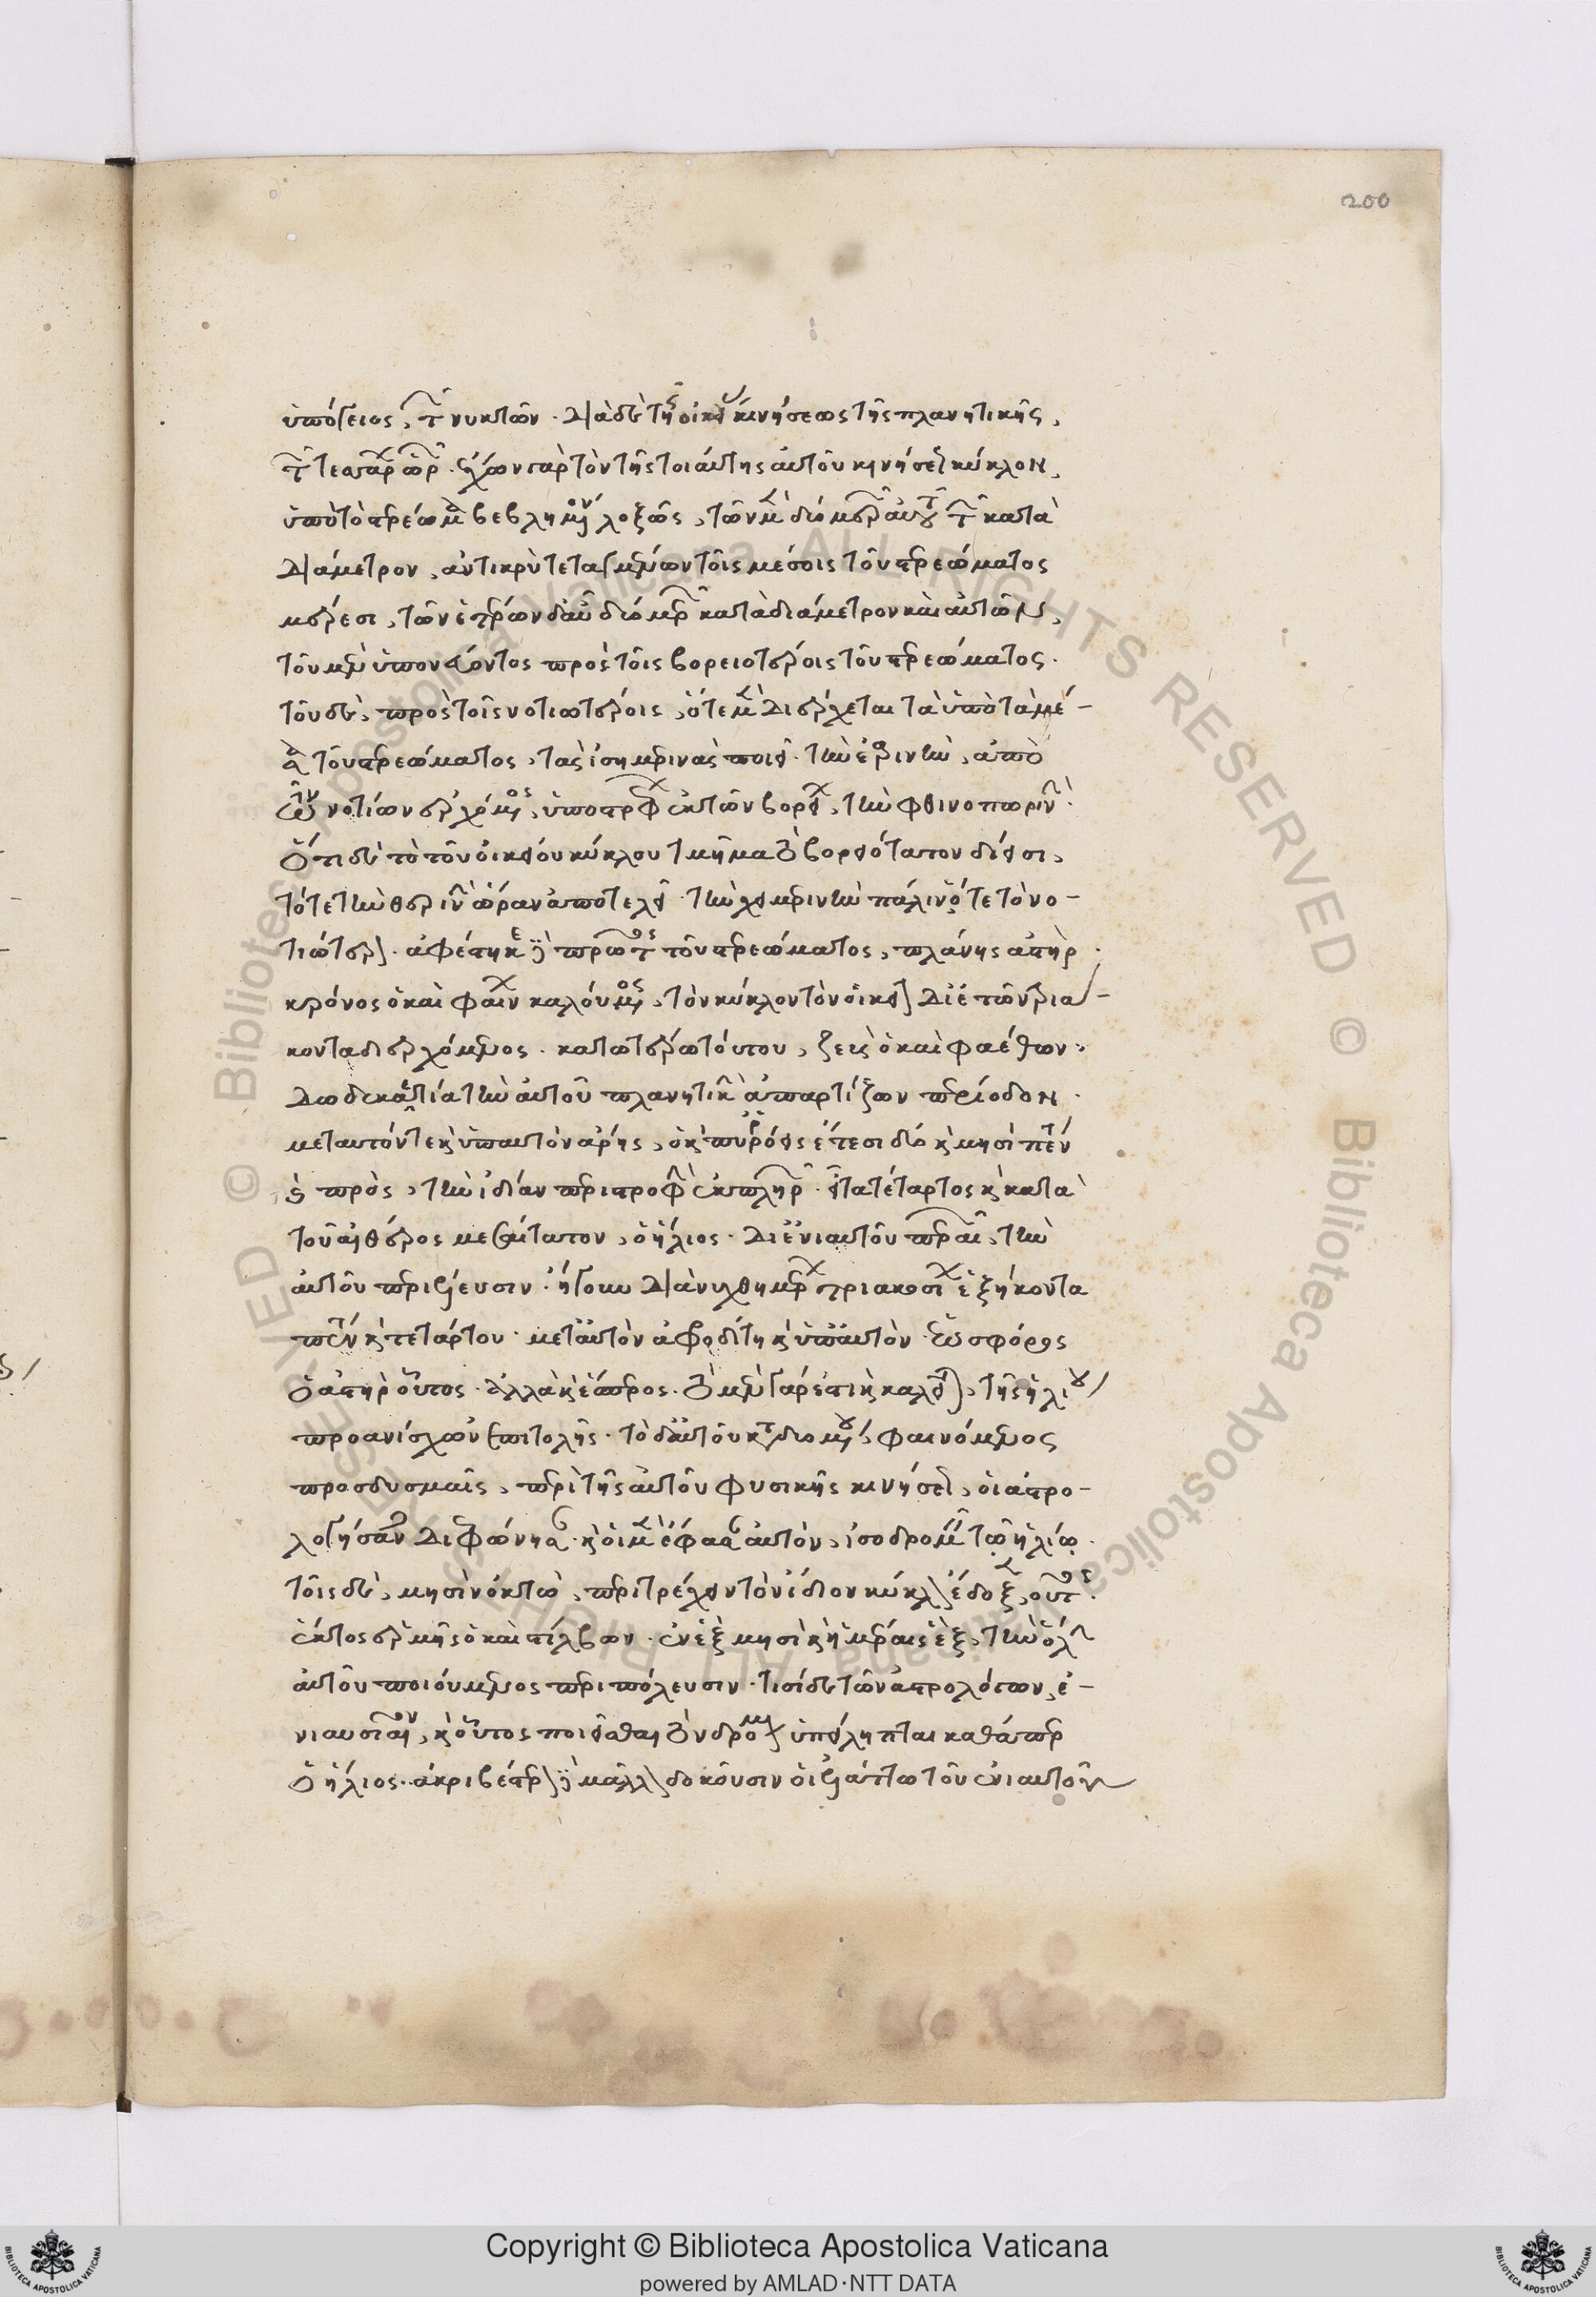 200
ὑπόγειος, τῶν νυκτῶν. διὰ δὲ τῆς οἰκείου κινήσεως τῆς πλανητικῆς,
τῶν τεσσάρων ὡρῶν. ἔχων γὰρ τὸν τῆς τοιαύτης αὐτοῦ κινήσεως κύκλον,
ὑπὸ τὸ στερέωμα βεβλημένον λοξῶς, τῶν μὲν δύο μερῶν αὐτοῦ τῶν κατὰ
διάμετρον, ἀντικρὺ τεταγμένων τοῖς μέσοις τοῦ στερεώματος
μέρεσι, τῶν ἑτέρων δ' αὖ δύο μερῶν κατὰ διάμετρον καὶ αὐτῶν,
τοῦ μὲν ὑπονεύοντος πρὸς τοῖς βορειοτέροις τοῦ στερεώματος.
τοῦ δὲ, πρὸς τοῖς νοτιωτέροις, ὅτε μὲν διέρχεται τὰ ὑπὸ τὰ μέ-
σα τοῦ στερεώματος, τὰς ἰσημερινὰς ποιεῖ. τὴν ἐαρινὴν, ἀπὸ
τῶν νοτίων ἐρχόμενος, ὑποστρέφων ἐκ τῶν βορείων, τὴν φθινοπωρινὴν.
ὅτι δὲ τὸ τοῦ οἰκείου κύκλου τμῆμα τὸ βορειότατον δίεισι,
τότε τὴν θερινὴν ὥραν ἀποτελεῖ. τὴν χειμερινὴν πάλιν ὅτε τὸ νο-
τιώτερον. ἀφέστηκε δὲ πρώτως τοῦ στερεώματος, πλάνης ἀστὴρ
κρόνος ὁ καὶ φαίνων καλούμενος, τὸν κύκλον τὸν οἰκεῖον δι' ἐτῶν τρια-
κοντα διερχόμενος. κατωτέρω τούτου, ζεὺς ὁ καὶ φαέθων.
δωδεκαετία τὴν αὐτοῦ πλανητικὴν ἀπαρτίζων περίοδον.
μετ' αὐτόν τε καὶ ὑπ' αὐτὸν ἄρης, ὁ καὶ πυρόεις ἔτεσι δύο καὶ μησὶ πέντε
που πρὸς, τὴν ἰδίαν περιστροφὴν ἐκπληρῶν. εἶτα τέταρτος καὶ κατὰ
τοῦ αἰθέρος μεσαίτατον, ὁ ἥλιος. δι' ἐνιαυτοῦ περαίνων, τὴν
αὐτοῦ περιέλευσιν. ἤγουν διὰ νυχθημέρων τριακοσίων ἑξήκοντα
πέντε καὶ τετάρτου. μετ' αὐτὸν ἀφροδίτη καὶ ὑπ' αὐτὸν. ἑωσφόρος
ὁ ἀστὴρ οὗτος. ἀλλὰ καὶ ἕσπερος. τὸ μὲν γάρ ἐστι καὶ καλεῖται, τῆς ἡλίου
προανίσχων ἐπιτολῆς. τὸ δ' αὐτοῦ καταδυομένου, φαινόμενος
προσδυσμαῖς, περὶ τῆς αὐτοῦ φυσικῆς κινήσεως, οἱ ἀστρο-
λογήσαντες διεφώνησαν. καὶ οἱ μὲν ἔφασαν αὐτὸν, ἰσοδρομεῖν τῷ ἡλίῳ.
τοῖς δὲ, μησὶν ὀκτὼ, περιτρέχειν τὸν ἴδιον κύκλον ἔδοξεν, οὕτως.
ἕκτος ἑρμῆς ὁ καὶ στίλβων. ἐν ἓξ μησὶ καὶ ἡμέραις ἓξ, τὴν ὅλην
αὐτοῦ ποιούμενος περιπόλευσιν. τισὶ δὲ τῶν ἀστρολόγων, ἐ-
νιαυσιαῖον, καὶ οὗτος ποιεῖσθαι τὸν δρόμον ὑπείληπται καθάπερ
ὁ ἥλιος. ἀκριβέστερον δὲ μᾶλλον δοκοῦσιν οἱ ἐξάπτω τοῦ ἐνιαυτοῦ
Copyright © Biblioteca Apostolica Vaticana
powered by AMLAD·NTT DATA